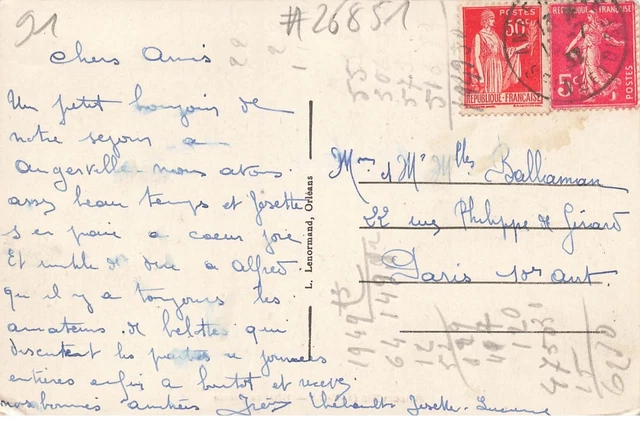 91
#26851
chers Amis
Un petit bonjour de
notre sejour a
Angerville nous avons
assez beau temps et Josette
s en paie a coeur joie
Et inutile de dire a Alfred
qu il y a toujours les
amateurs de belotte qui
discutent les parties journees
entières enfin a bientot et recevez
nos bonnes amitiés Thébault Josette Lucienne
L. Lenormand, Orléans
POSTES
50c
REPUBLIQUE-FRANÇAISE
REPUBLIQUE FRANÇAISE
5c
POSTES
Mme & Mr Mlle Ballaman
22 rue Philippe de Girard
Paris 10er arrt.